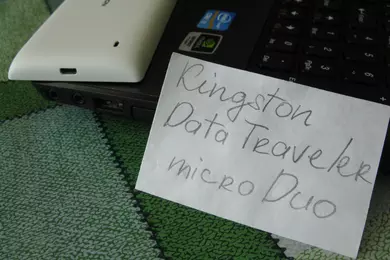 Kingston
Data Traveler
micro Duo